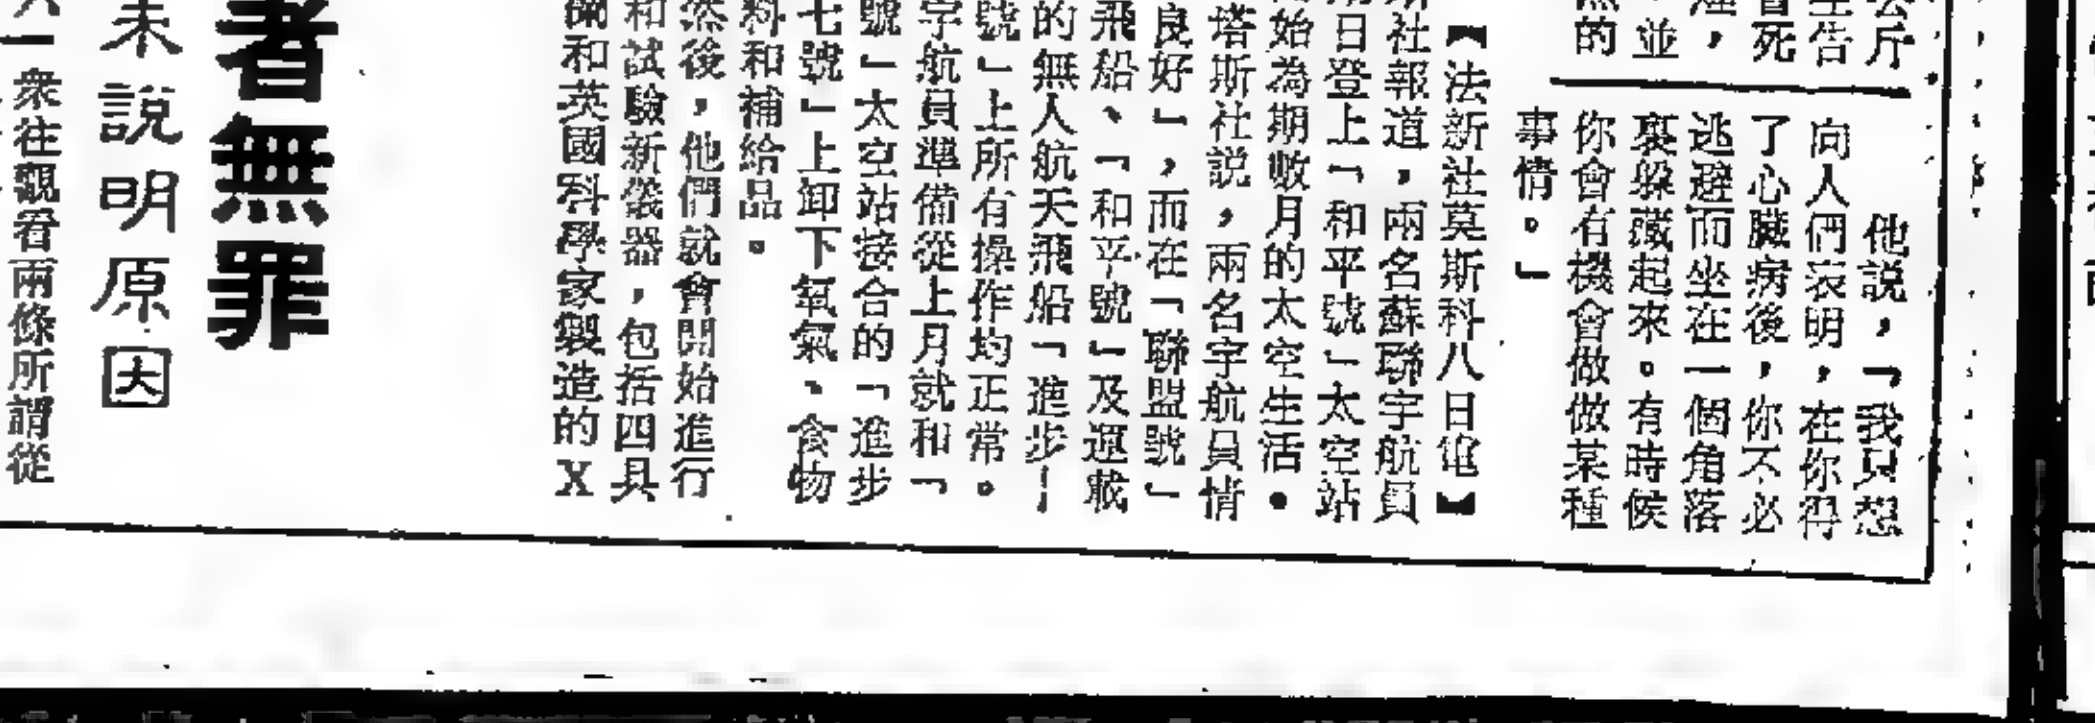 公斤
生告
死
，
，並
的
他説，「我只想
向人們表明，在你得
了心臟病後，你不必
逃避而坐在一個角落
裏躲藏起來。有時候
你會有機會做做某種
事情。」
【法新社莫斯科八日電】
斯社報道，兩名蘇聯宇航員
日登上「和平號」太空站
始為期數月的太空生活。
塔斯社説，兩名宇航員情
良好」，而在「聯盟號」
飛船、「和平號」及運載
的無人航天飛船「進步—
號」上所有操作均正常。
宇航員準備從上月就和「
號」太空站接合的「進步
七號」上卸下氧氣、食物
料和補給品。
然後，他們就會開始進行
和試驗新儀器，包括四具
蘭和英國科學家製造的X
者無罪
未説明原因
一衆往觀看兩條所謂從